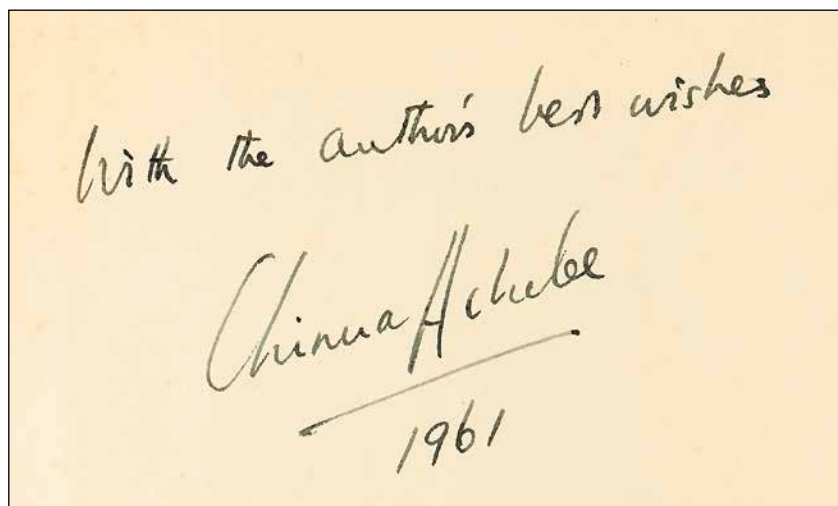 With the author's best wishes
Chinua Achebe
1961